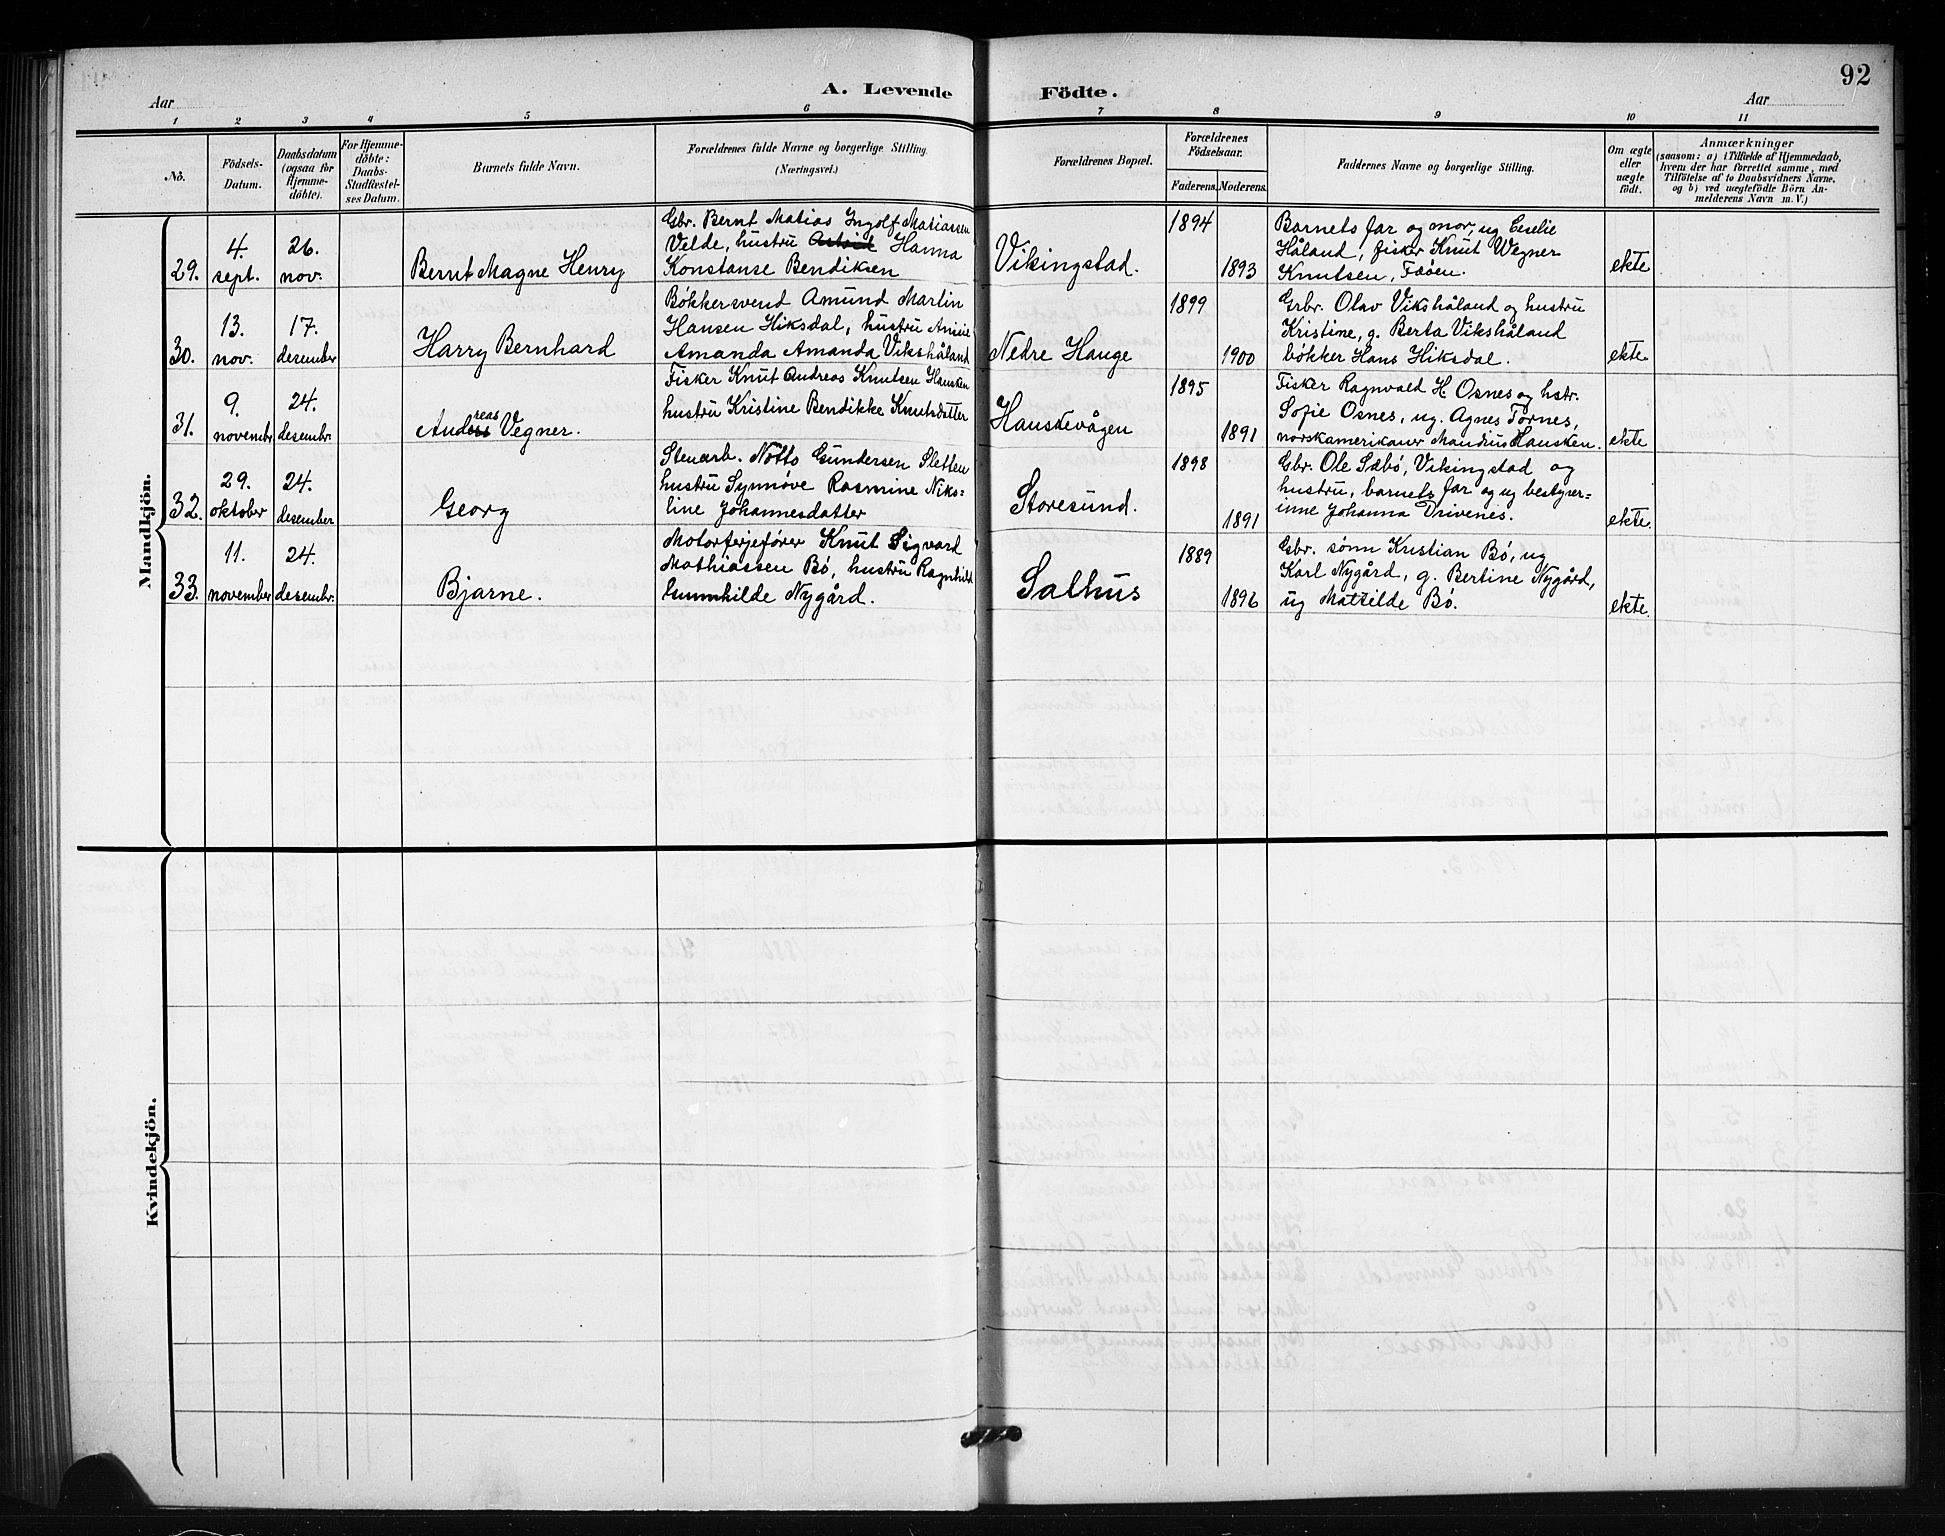 92
A. Levende Födte.
Aar
Aar
1 2 3 4 5 6 7 8 9 10 11
No.
Födsels-
Datum.
Daabsdatum
(ogsaa for
Hjemme-
döbte).
For Hjemme-
döbte:
Daabs-
Stadfæstel-
ses Datum.
Barnets fulde Navn.
Forældrenes fulde Navne og borgerlige Stilling.
(Næringsvei.)
Forældrenes Bopæl.
Forældrenes
Födselsaar.
Faderens. Moderens.
Faddernes Navne og borgerlige Stilling.
Om ægte
eller
uægte
födt.
Anmærkninger
(saasom: a) i Tilfælde af Hjemmedaab,
hvem der har forrettet samme, med
Tilföielse af to Daabsvidners Navne,
og b) ved uægtefödte Börn An-
melderens Navn m. V.)
Mandkjön.
29.
4.
sept.
26.
nov.
Bernt Magne Henry
Gbr. Bernt Matias Ingolf Matiassen
Velde, hustru Astrid Hanna
Konstanse Bendiksen
Vikingstad.
1894
1893
Barnets far og mor, ug Ceselie
Håland, fisker Knut Wegner
Knutsen, Fæøen.
ekte
30.
13.
nov.
17.
desember
Harry Bernhard
Bøkkersvend Amund Martin
Hansen Hiksdal, hustru Annie
Amanda Amanda Vikshåland
Nedre Hauge
1899
1900
Grbr. Olav Vikshåland og hustru
Kristine, g. Berta Vikshåland
bøkker Hans Hiksdal.
ekte
31.
9.
novembr
24.
desembr.
reas
Anders Vegner.
Fisker Knut Andreas Knutsen Hausken
hustru Kristine Bendikke Knutsdatter
Haustevågen
1895
1891
Fisker Ragnvald H. Osnes og hstr.
Sofie Osnes, ug. Agnes Tornes,
norskamerikaner Mandius Hausken.
ekte
32.
29.
oktober
24.
desember
Georg
Stenarb. Notto Gundersen Sletten
hustru Synnøve Rasmine Niko=
line Johannesdatter
Storesund.
1898
1891
Gbr. Ole Sæbø, Vikingstad og
hustru, barnets far og ug bestyrer=
inne Johanna Drivenes.
ekte.
33.
11.
november
24.
desembr.
Bjarne.
Motorferjefører Knut Sigvard
Mathiassen Bø, hustru Ragnhild
Gunnhilde Nygård.
Salhus
1889
1896
Gbr. sønn Kristian Bø, ug
Karl Nygård, g. Bertine Nygård,
ug Mathilde Bø.
ekte
Kvindekjön.